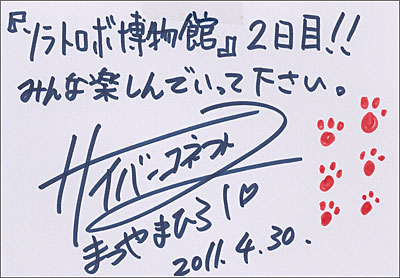 『ソラトロボ博物館』2日目!!
みんな楽しんでいって下さい。
サイバーコネクトツー
まつやまひろし♡
2011.4.30.